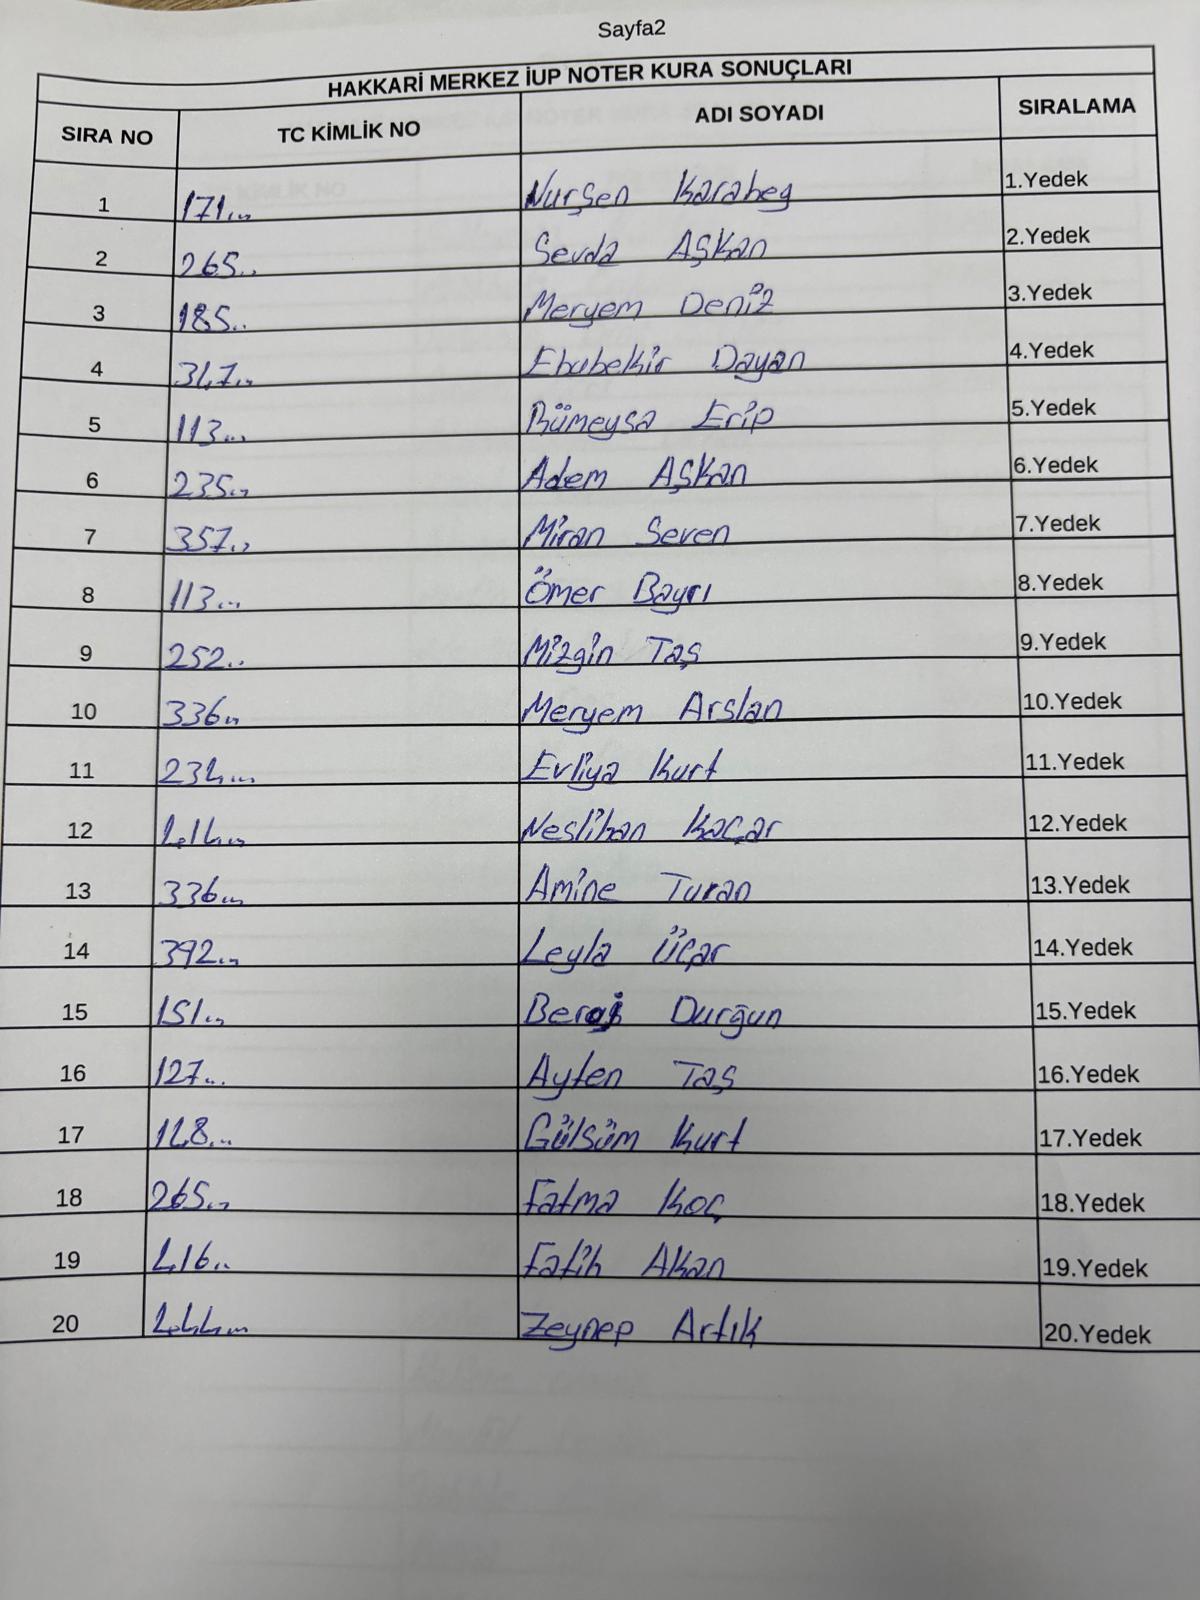 Sayfa2
HAKKARİ MERKEZ İUP NOTER KURA SONUÇLARI
SIRA NO TC KİMLİK NO ADI SOYADI SIRALAMA
1 171... Nurşen Karabeg 1.Yedek
2 265.. Sevda Aşkan 2.Yedek
3 185.. Meryem Deniz 3.Yedek
4 347... Ebubekir Dayan 4.Yedek
5 113... Rümeysa Erip 5.Yedek
6 235... Adem Aşkan 6.Yedek
7 357.. Miran Seven 7.Yedek
8 113... Ömer Bayrı 8.Yedek
9 252.. Mizgin Taş 9.Yedek
10 336.. Meryem Arslan 10.Yedek
11 234... Evliya Kurt 11.Yedek
12 Neslihan Kaçar 12.Yedek
13 336... Amine Turan 13.Yedek
14 392... Leyla Üçar 14.Yedek
15 151... Durğun 15.Yedek
16 127... Ayten Taş 16.Yedek
17 148... Gülsüm Kurt 17.Yedek
18 265... Fatma Koç 18.Yedek
19 416.. Fatih Akan 19.Yedek
20 Zeynep Artık 20.Yedek